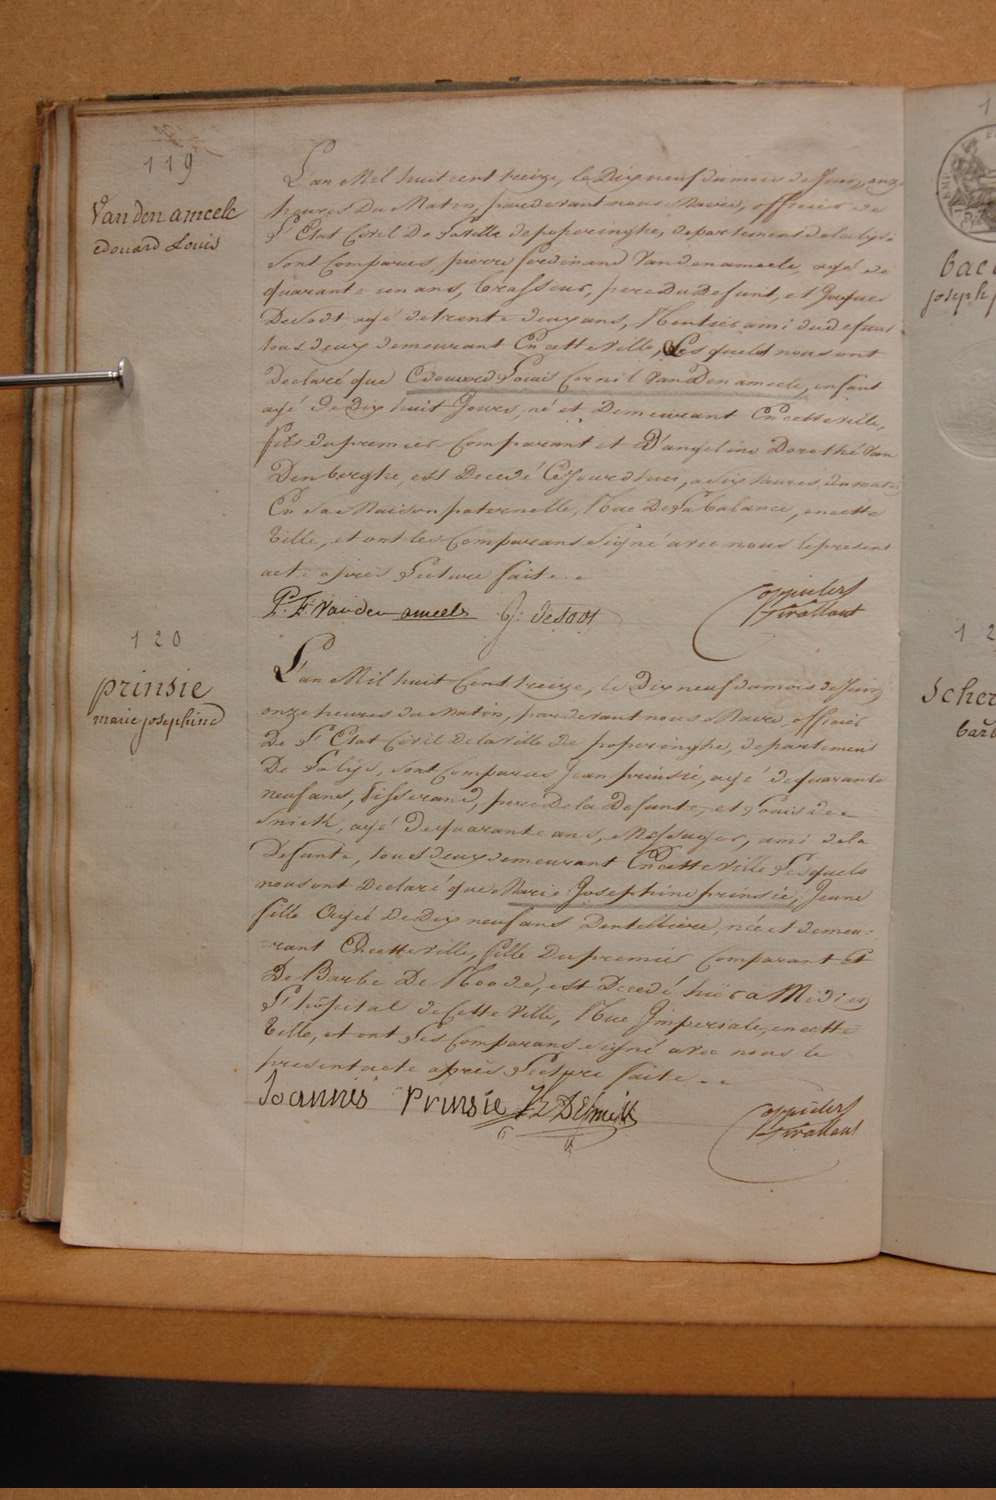 119
Van den ameele
Edouard Louis
L'an Mil huit cent treize, le Dix neuf du mois de Juin, onze
heures Du Matin, pardevant nous Maire, officier de
L'Etat Civil De La Ville de poperinghe, departement de la Lys,
sont Comparus, pierre ferdinand Vandenameele, agé de
quarante un ans, brasseur, pere Du Defunt, et Jacques
Desodt agé de trente deux ans, Rentier ami du defunt
tous deux demeurant En cette Ville, Lesquels nous ont
Declaré que Edouard Louis Cornil Van Den ameele, enfant
agé de Dix huit Jours, né et Demeurant En cette Ville,
fils du premier Comparant et D'angeline Dorothé Van
Denberghe, est Decedé Cejourdhui, a six heures du matin
En sa Maison paternelle, Rue De La balance, en cette
Ville, et ont les Comparans signé avec nous le present
acte après Lecture faite..
P. F. Vanden ameele J: desodt
120
prinsie
marie josephine
L'an Mil huit Cent treize, le Dix neuf du mois de Juin
onze heures du Matin, pardevant nous Maire, officier
De L'Etat Civil De la Ville De poperinghe, departement
De La Lys, sont Comparus Jean prinsié, agé de quarante
neuf ans, tisserand, pere De la Defunte, et Louis De
Snick, agé De quarante ans, Messager, ami de la
Defunte, tous deux demeurant En cette Ville Lesquels
nous ont Declaré que Marie Josephine prinsié, Jeune
fille Agée De Dix neuf ans Dentelliere, née et demeu=
=rant En cette Ville, fille Du premier Comparant Et
De Barbe De Roode, est Decedé hier a Midi en
L'hôpital de Cette Ville, Rue Imperiale, en cette
Ville, et ont Les Comparans signé avec nous le
present acte après Lecture faite..
Joannis Prinsie
1
bac
joseph
12
Scher
bar